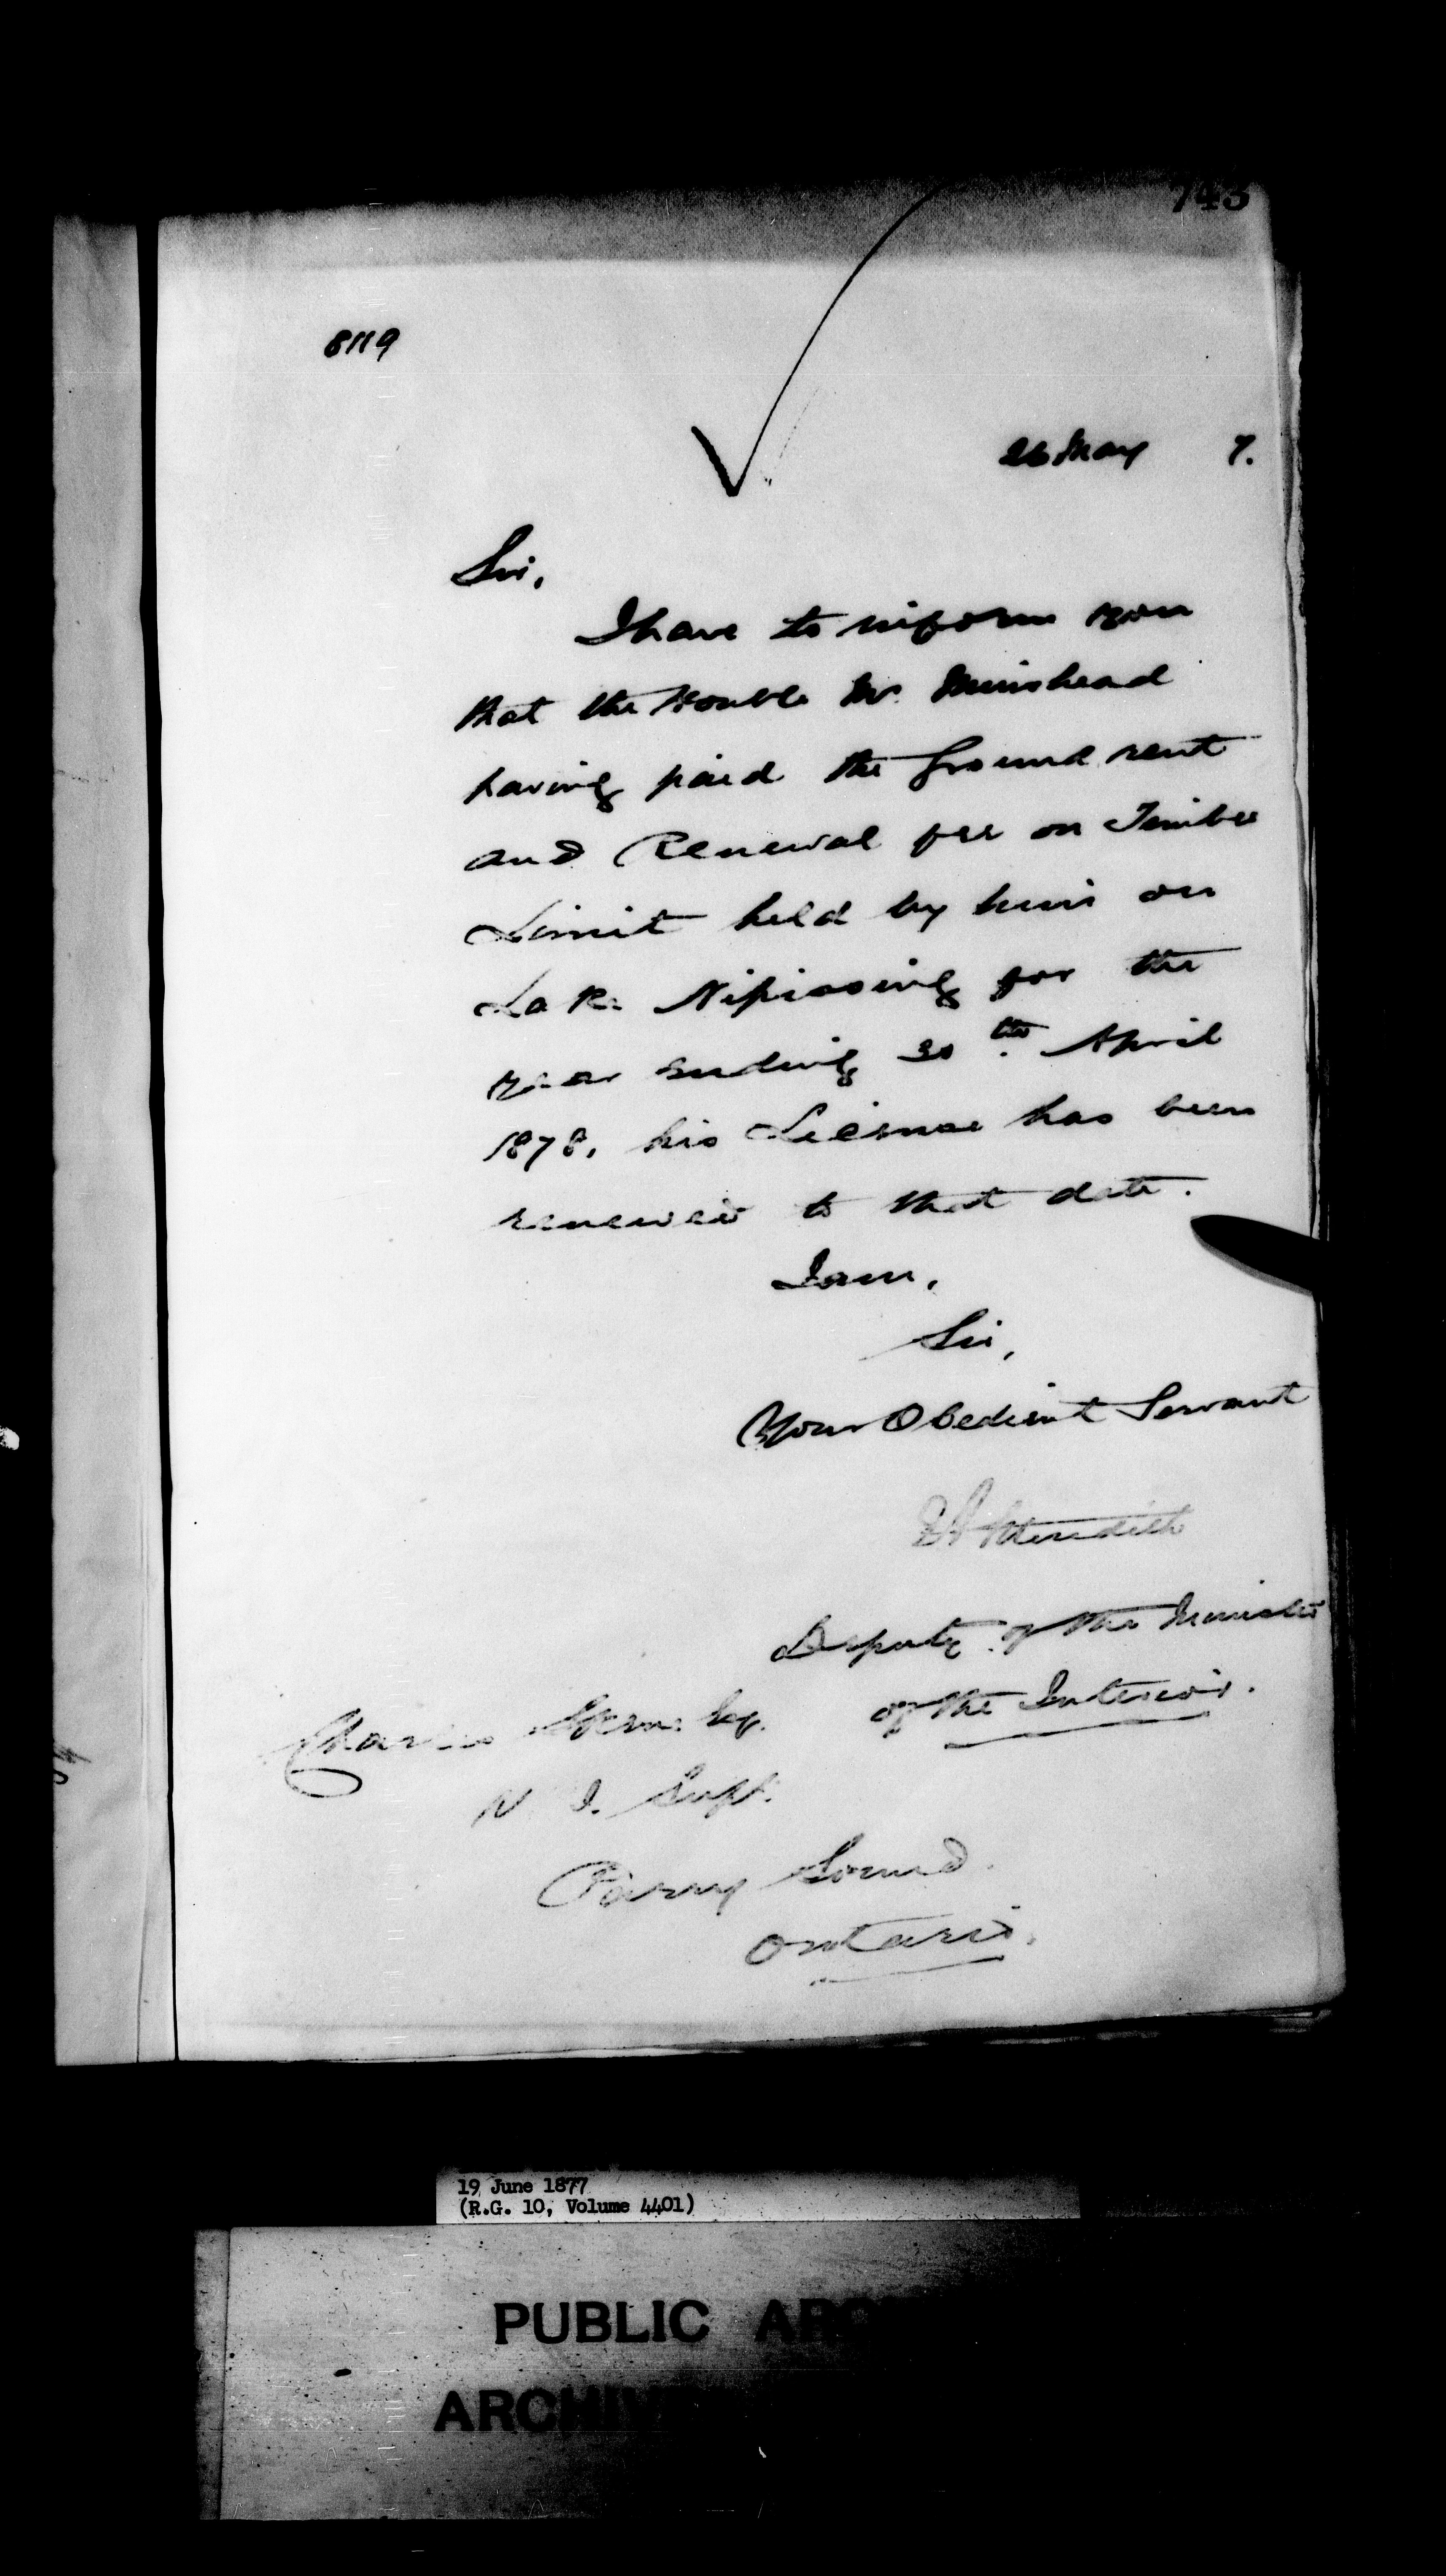 743
8119
26 May 7.
Sir,
I have to inform you
that the Honble Mr. Muirhead
having paid the Ground rent
and Renewal fee on Timber
Limit held by him on
Lake Nipissing for the
year ending 30th. April
1878, his License has been
renewed to that date.
I am,
Sir,
Your Obedient Servant
E A Meredith
Deputy of the Minister
of the Interior.
Charles Skene Esq.
N I. Supt.
Parry Sound.
Ontario.
19 June 1877
(R.G. 10, Volume 4401)
PUBLIC ARC
ARCHIVE